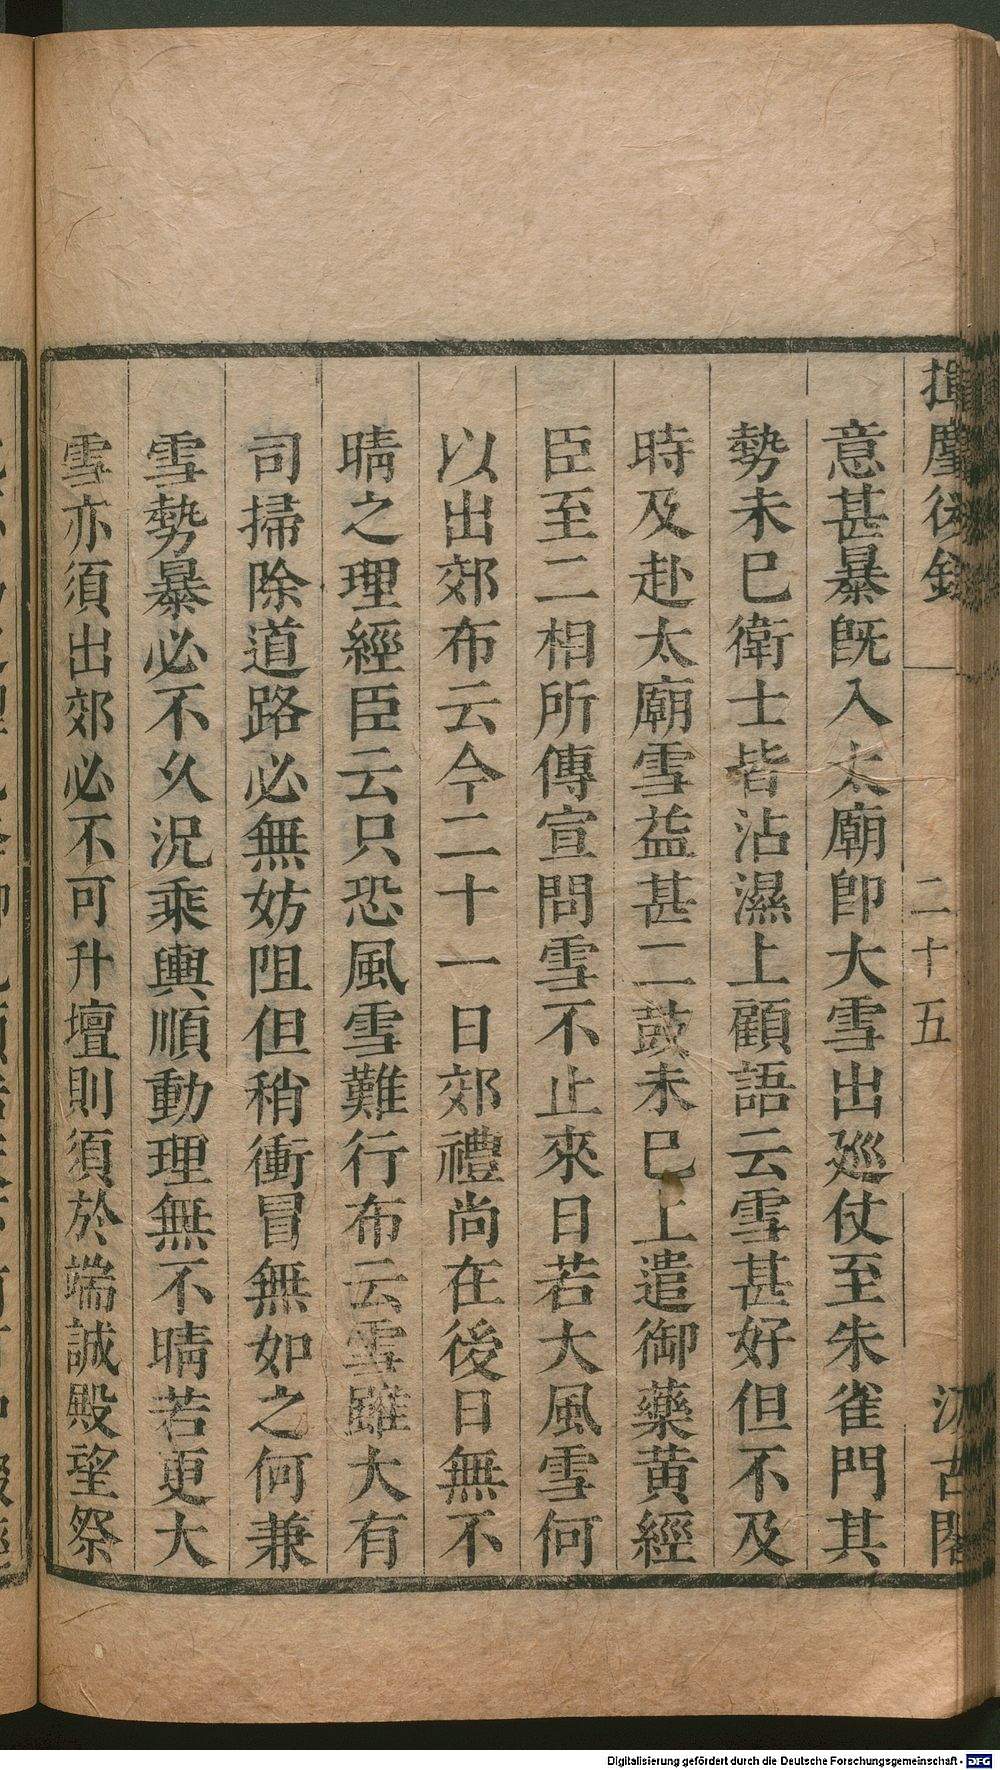 揮麈後錄
二十五
汲古閣
意甚暴旣入太廟卽大雪出廵仗至朱雀門其
勢未巳衛士皆沾濕上顧語云雪甚好但不及
時及赴太廟雪益甚二鼓未巳上遣御藥黄經
臣至二相所傳宣問雪不止來日若大風雪何
以出郊布云今二十一日郊禮尚在後日無不
晴之理經臣云只恐風雪難行布云雪雖大有
司掃除道路必無妨阻但稍衝冒無如之何兼
雪勢暴必不乆況乘輿順動理無不晴若更大
雪亦須出郊必不可升壇則須於端誠殿望祭
Digitalisierung gefördert durch die Deutsche Forschungsgemeinschaft - DFG